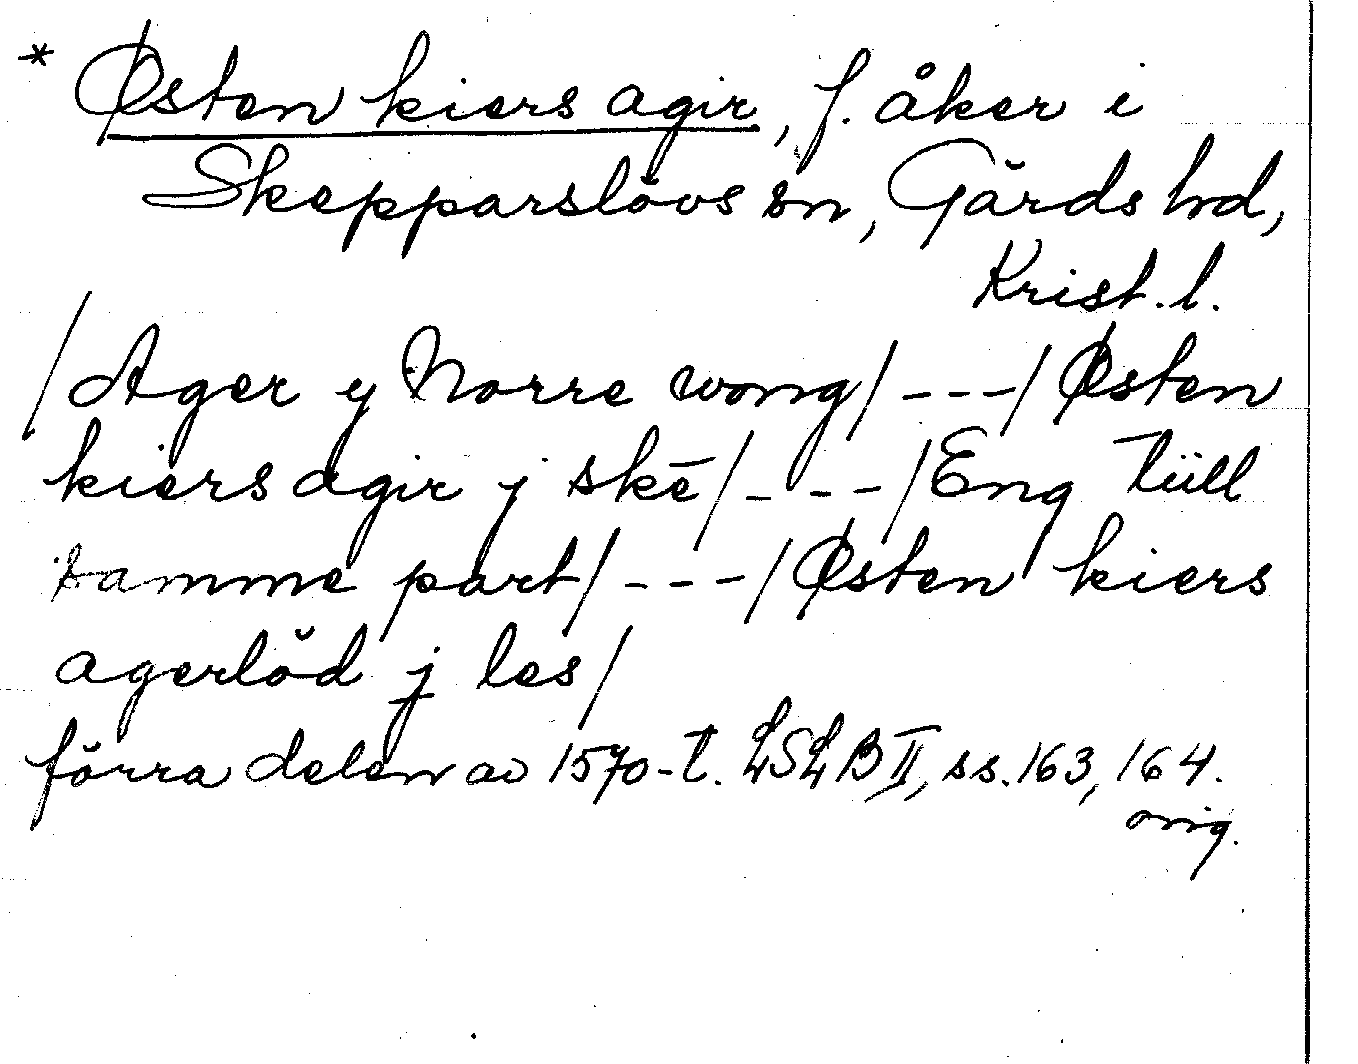 * Østen kiers agir, f. åker i
Skepparslövs sn, Gärds hd,
Krist. l.
/Ager y Norre wong/---/Østen
kiers agir y skē/---/Eng tüll
samme part/---/Østen kiers
agerlŏd j les/
förra delen av 1570-t. LSLB II, ss. 163, 164.
orig.